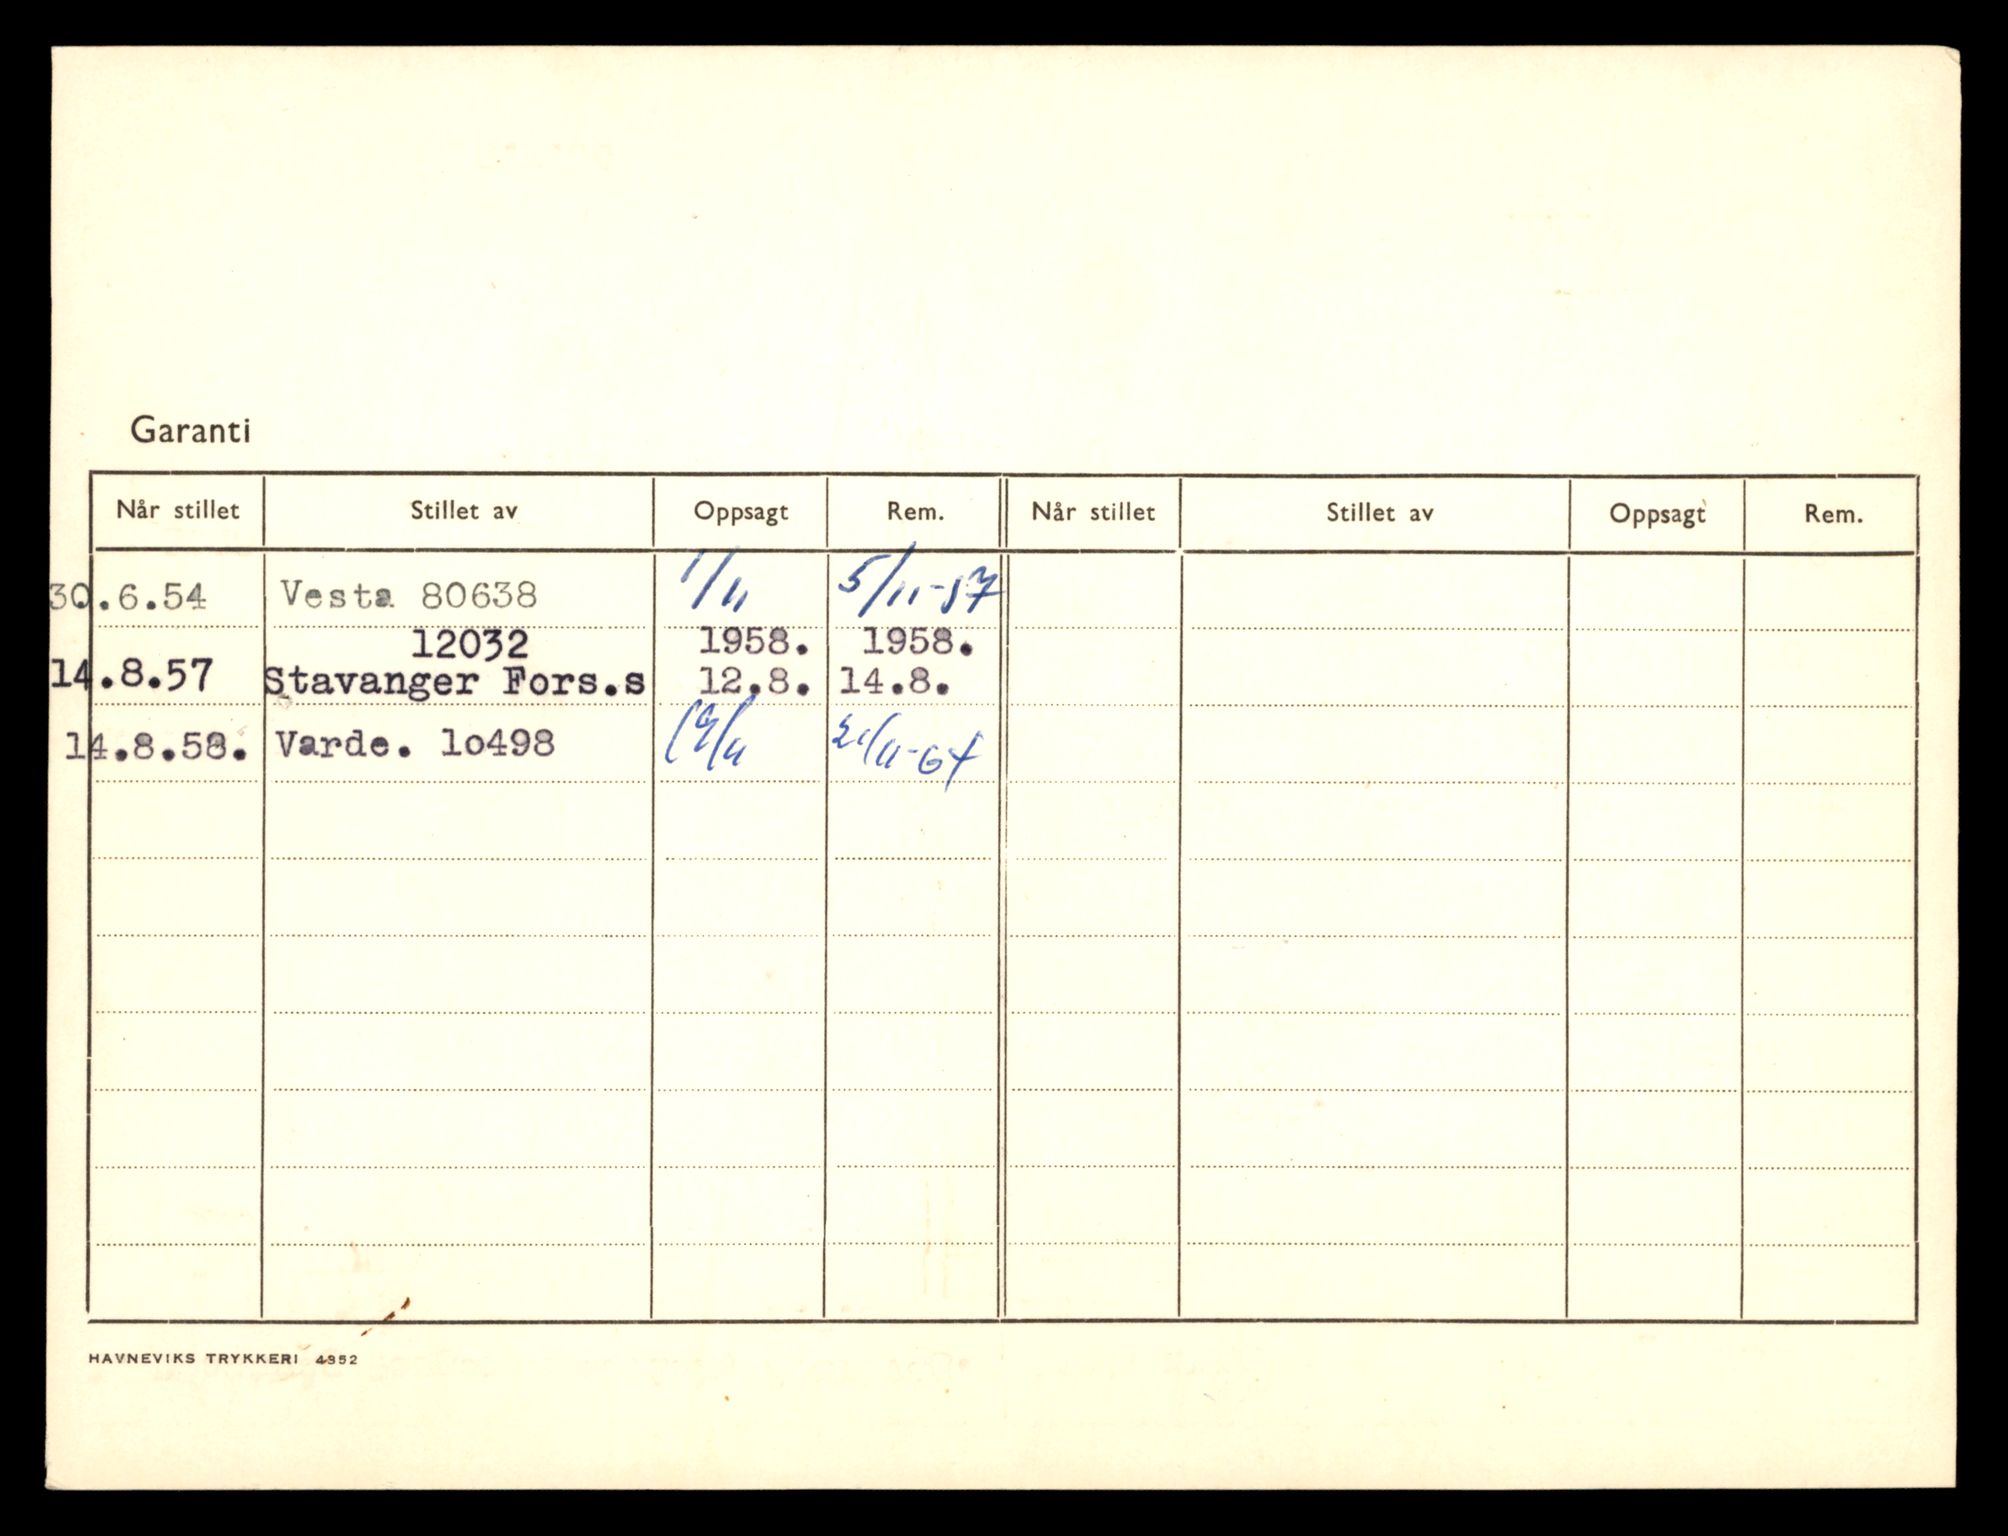 Garanti
Når stillet Stillet av Oppsagt Rem. Når stillet Stillet av Oppsagt Rem.
30.6.54 Vesta 80638 1/11 5/11-57
12032 1958. 1958.
14.8.57 Stavanger Fors.s 12.8. 14.8.
14.8.58. Varde. 1o498 19/11 21/11-67
HAVNEVIKS TRYKKERI 4352